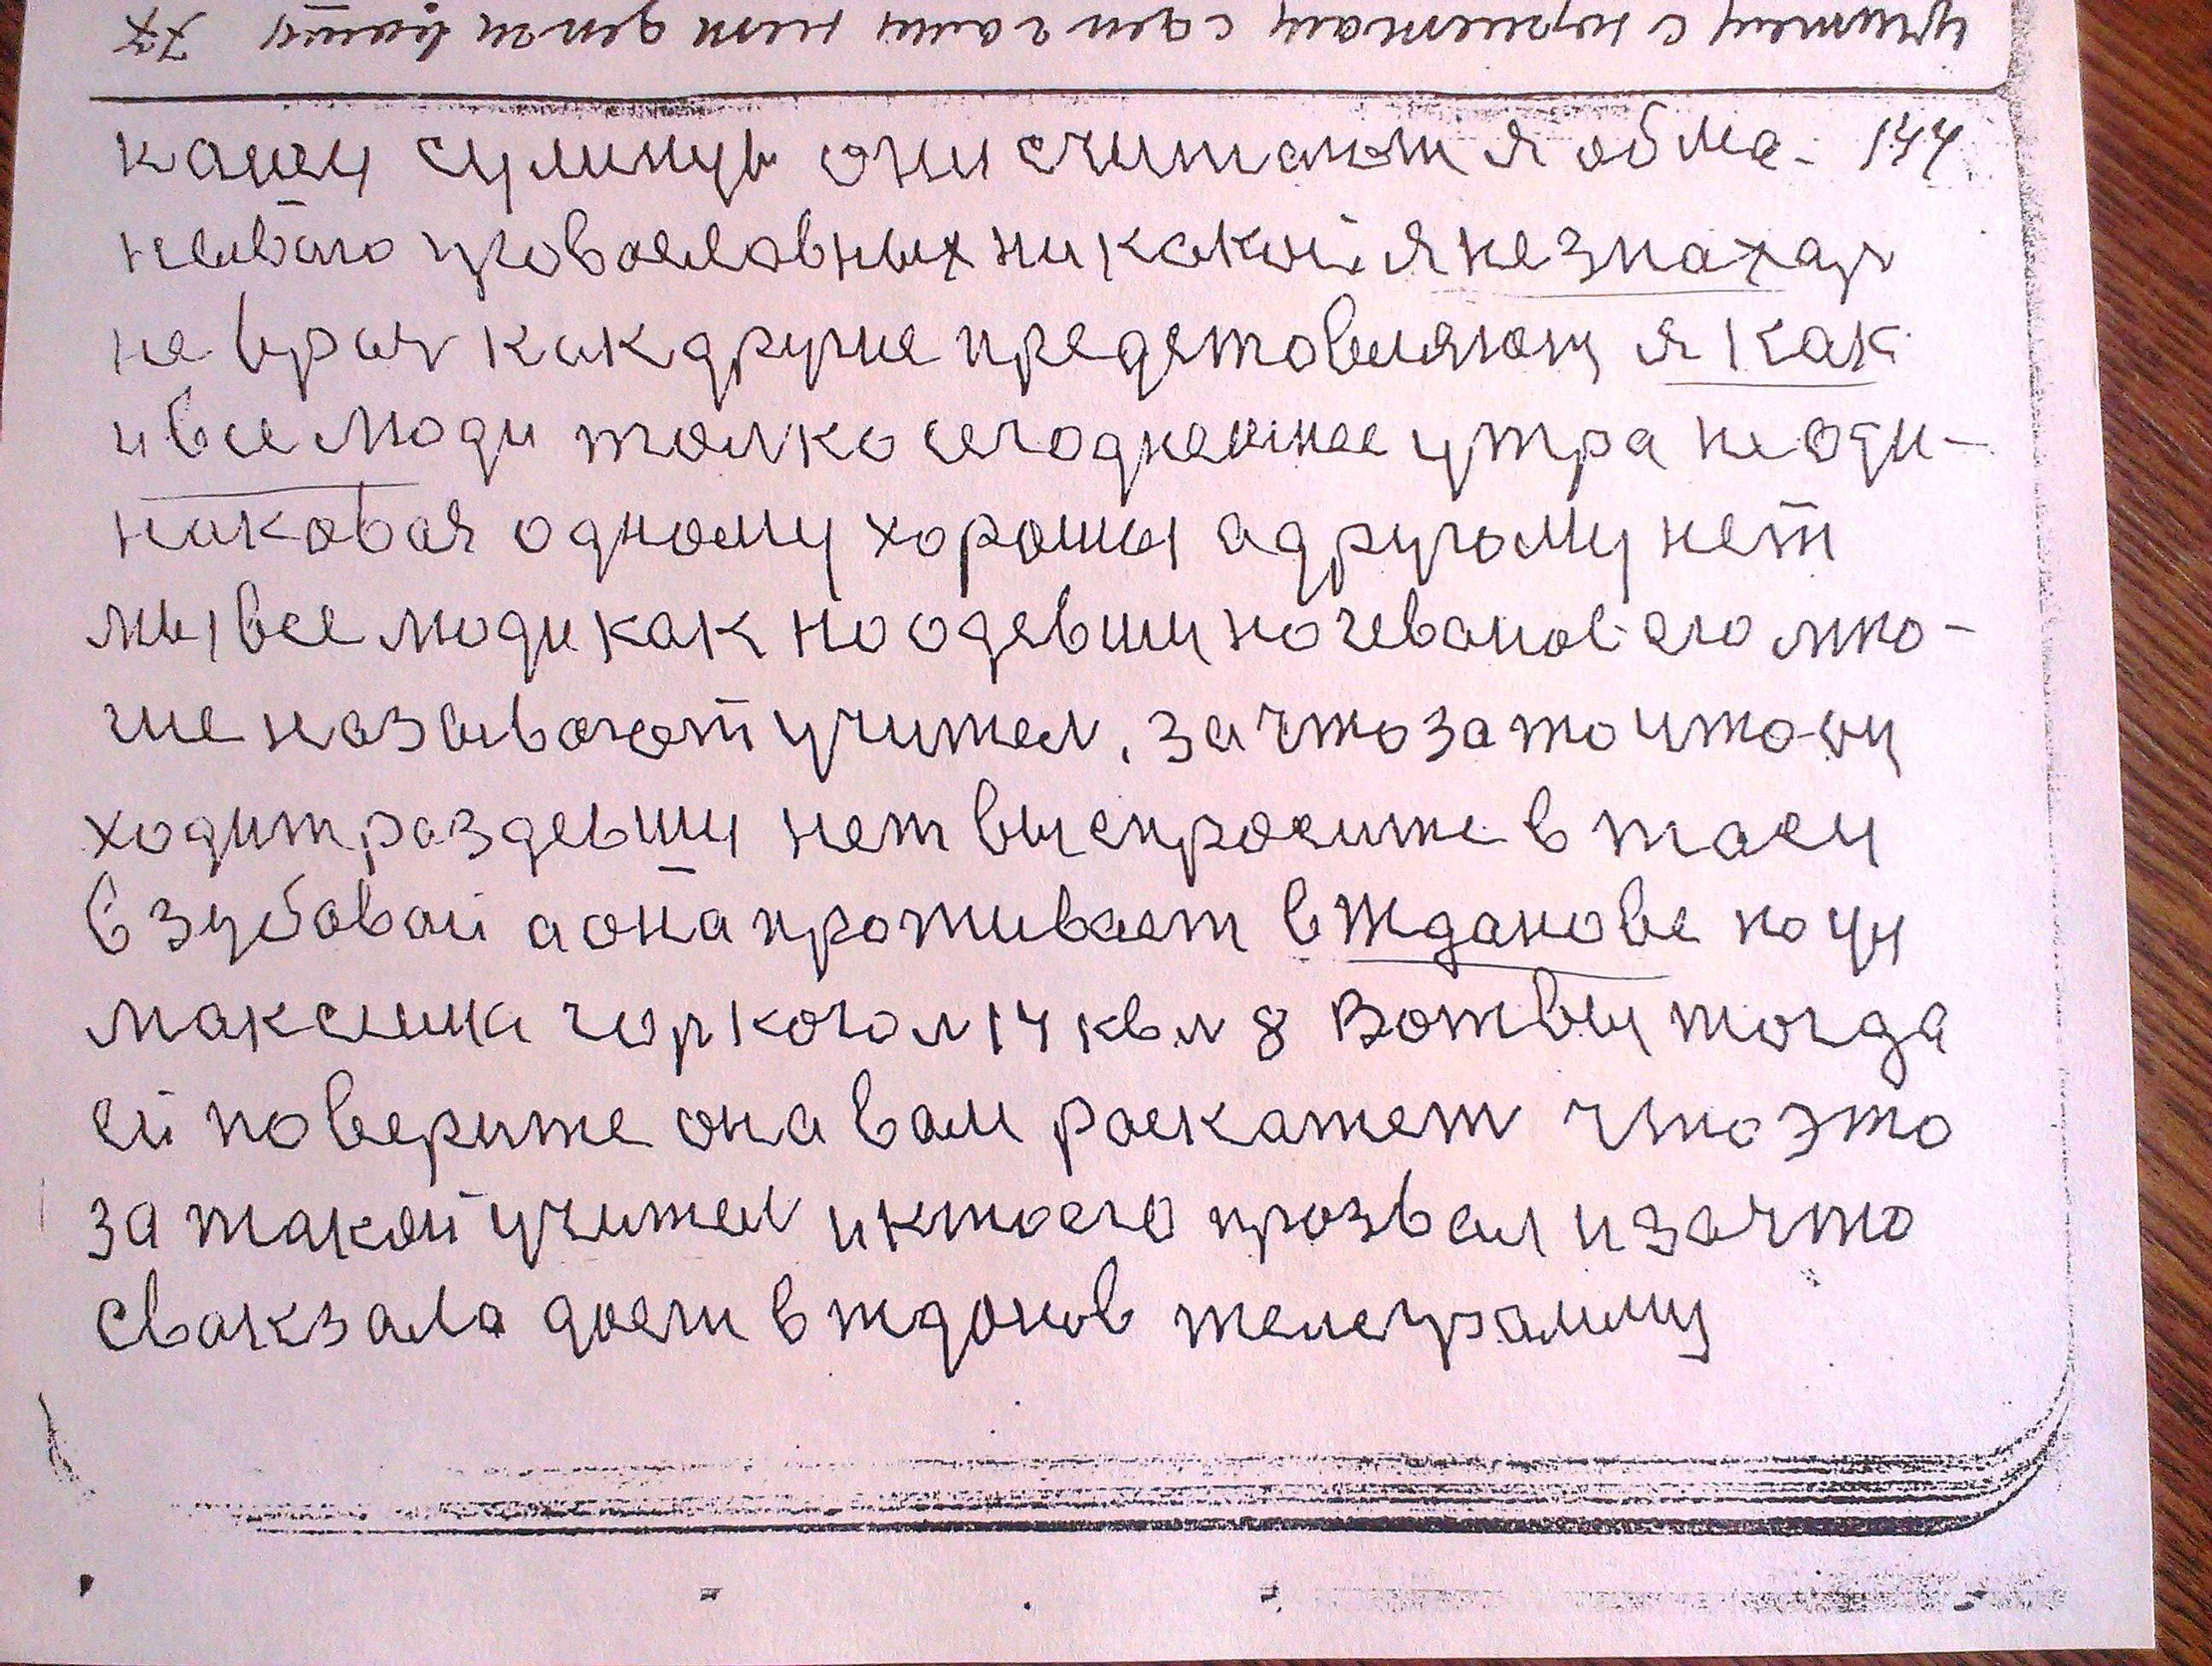 они считают я обма- 144
никакой я не знахар
не врач как другие представляют я как
и все люди толко сегодневшнее утра не оди-
наковая одному хорошы а другому нет
мы все люди как но одевши его мно-
гие называют учител. за что за то что он
ходит раздевши нет вы спросите в таси
в зубовай а она проживает в жданове по ул
максима горкого л 14 кв л 8 Вот вы тогда
ей поверите она вам раскажет что это
за такой учител и кто его прозвал и за что
с вакзала даем в жданов телеграмму